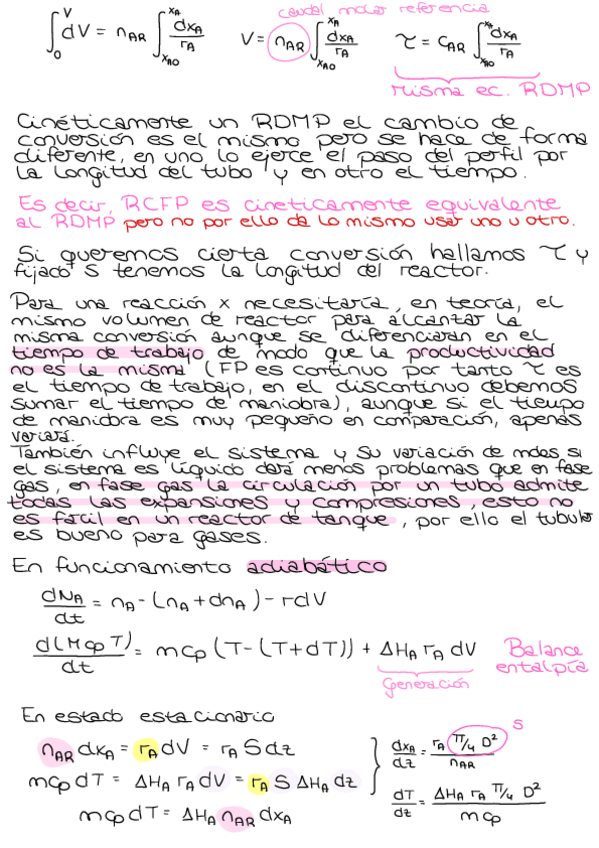 caudal molar referencia
∫₀^V dV = n_AR ∫_{x_A0}^{x_A} dx_A/r_A    V = n_AR ∫_{x_A0}^{x_A} dx_A/r_A    τ = C_AR ∫_{x_A0}^{x_A} dx_A/r_A
misma ec. RDMP
Cinéticamente un RDMP el cambio de
conversión es el mismo pero se hace de forma
diferente, en uno lo ejerce el paso del perfil por
la longitud del tubo y en otro el tiempo.
Es decir, RCFP es cineticamente equivalente
al RDMP pero no por ello da lo mismo usar uno u otro.
Si queremos cierta conversión hallamos τ y
fijado S tenemos la longitud del reactor.
Para una reacción x necesitaría, en teoría, el
mismo volumen de reactor para alcanzar la
misma conversión aunque se diferenciaran en el
tiempo de trabajo de modo que la productividad
no es la misma (FP es continuo por tanto τ es
el tiempo de trabajo, en el discontinuo debemos
sumar el tiempo de maniobra), aunque si el tiempo
de maniobra es muy pequeño en comparación, apenas
variará.
También influye el sistema y su variación de moles si
el sistema es líquido dará menos problemas que en fase
gas, en fase gas la circulación por un tubo admite
todas las expansiones y compresiones, esto no
es fácil en un reactor de tanque, por ello el tubular
es bueno para gases.
En funcionamiento adiabático
dN_A/dt = n_A - (n_A + dn_A) - rdV
d(M cp T)/dt = m cp (T - (T + dT)) + ΔH_A r_A dV    Balance
entalpía
Generación
En estado estacionario
n_AR dx_A = r_A dV = r_A S dz    dx_A/dz = r_A π/4 D² / n_AR    S
m cp dT = ΔH_A r_A dV = r_A S ΔH_A dz    dT/dz = ΔH_A r_A π/4 D² / m cp
m cp dT = ΔH_A n_AR dx_A